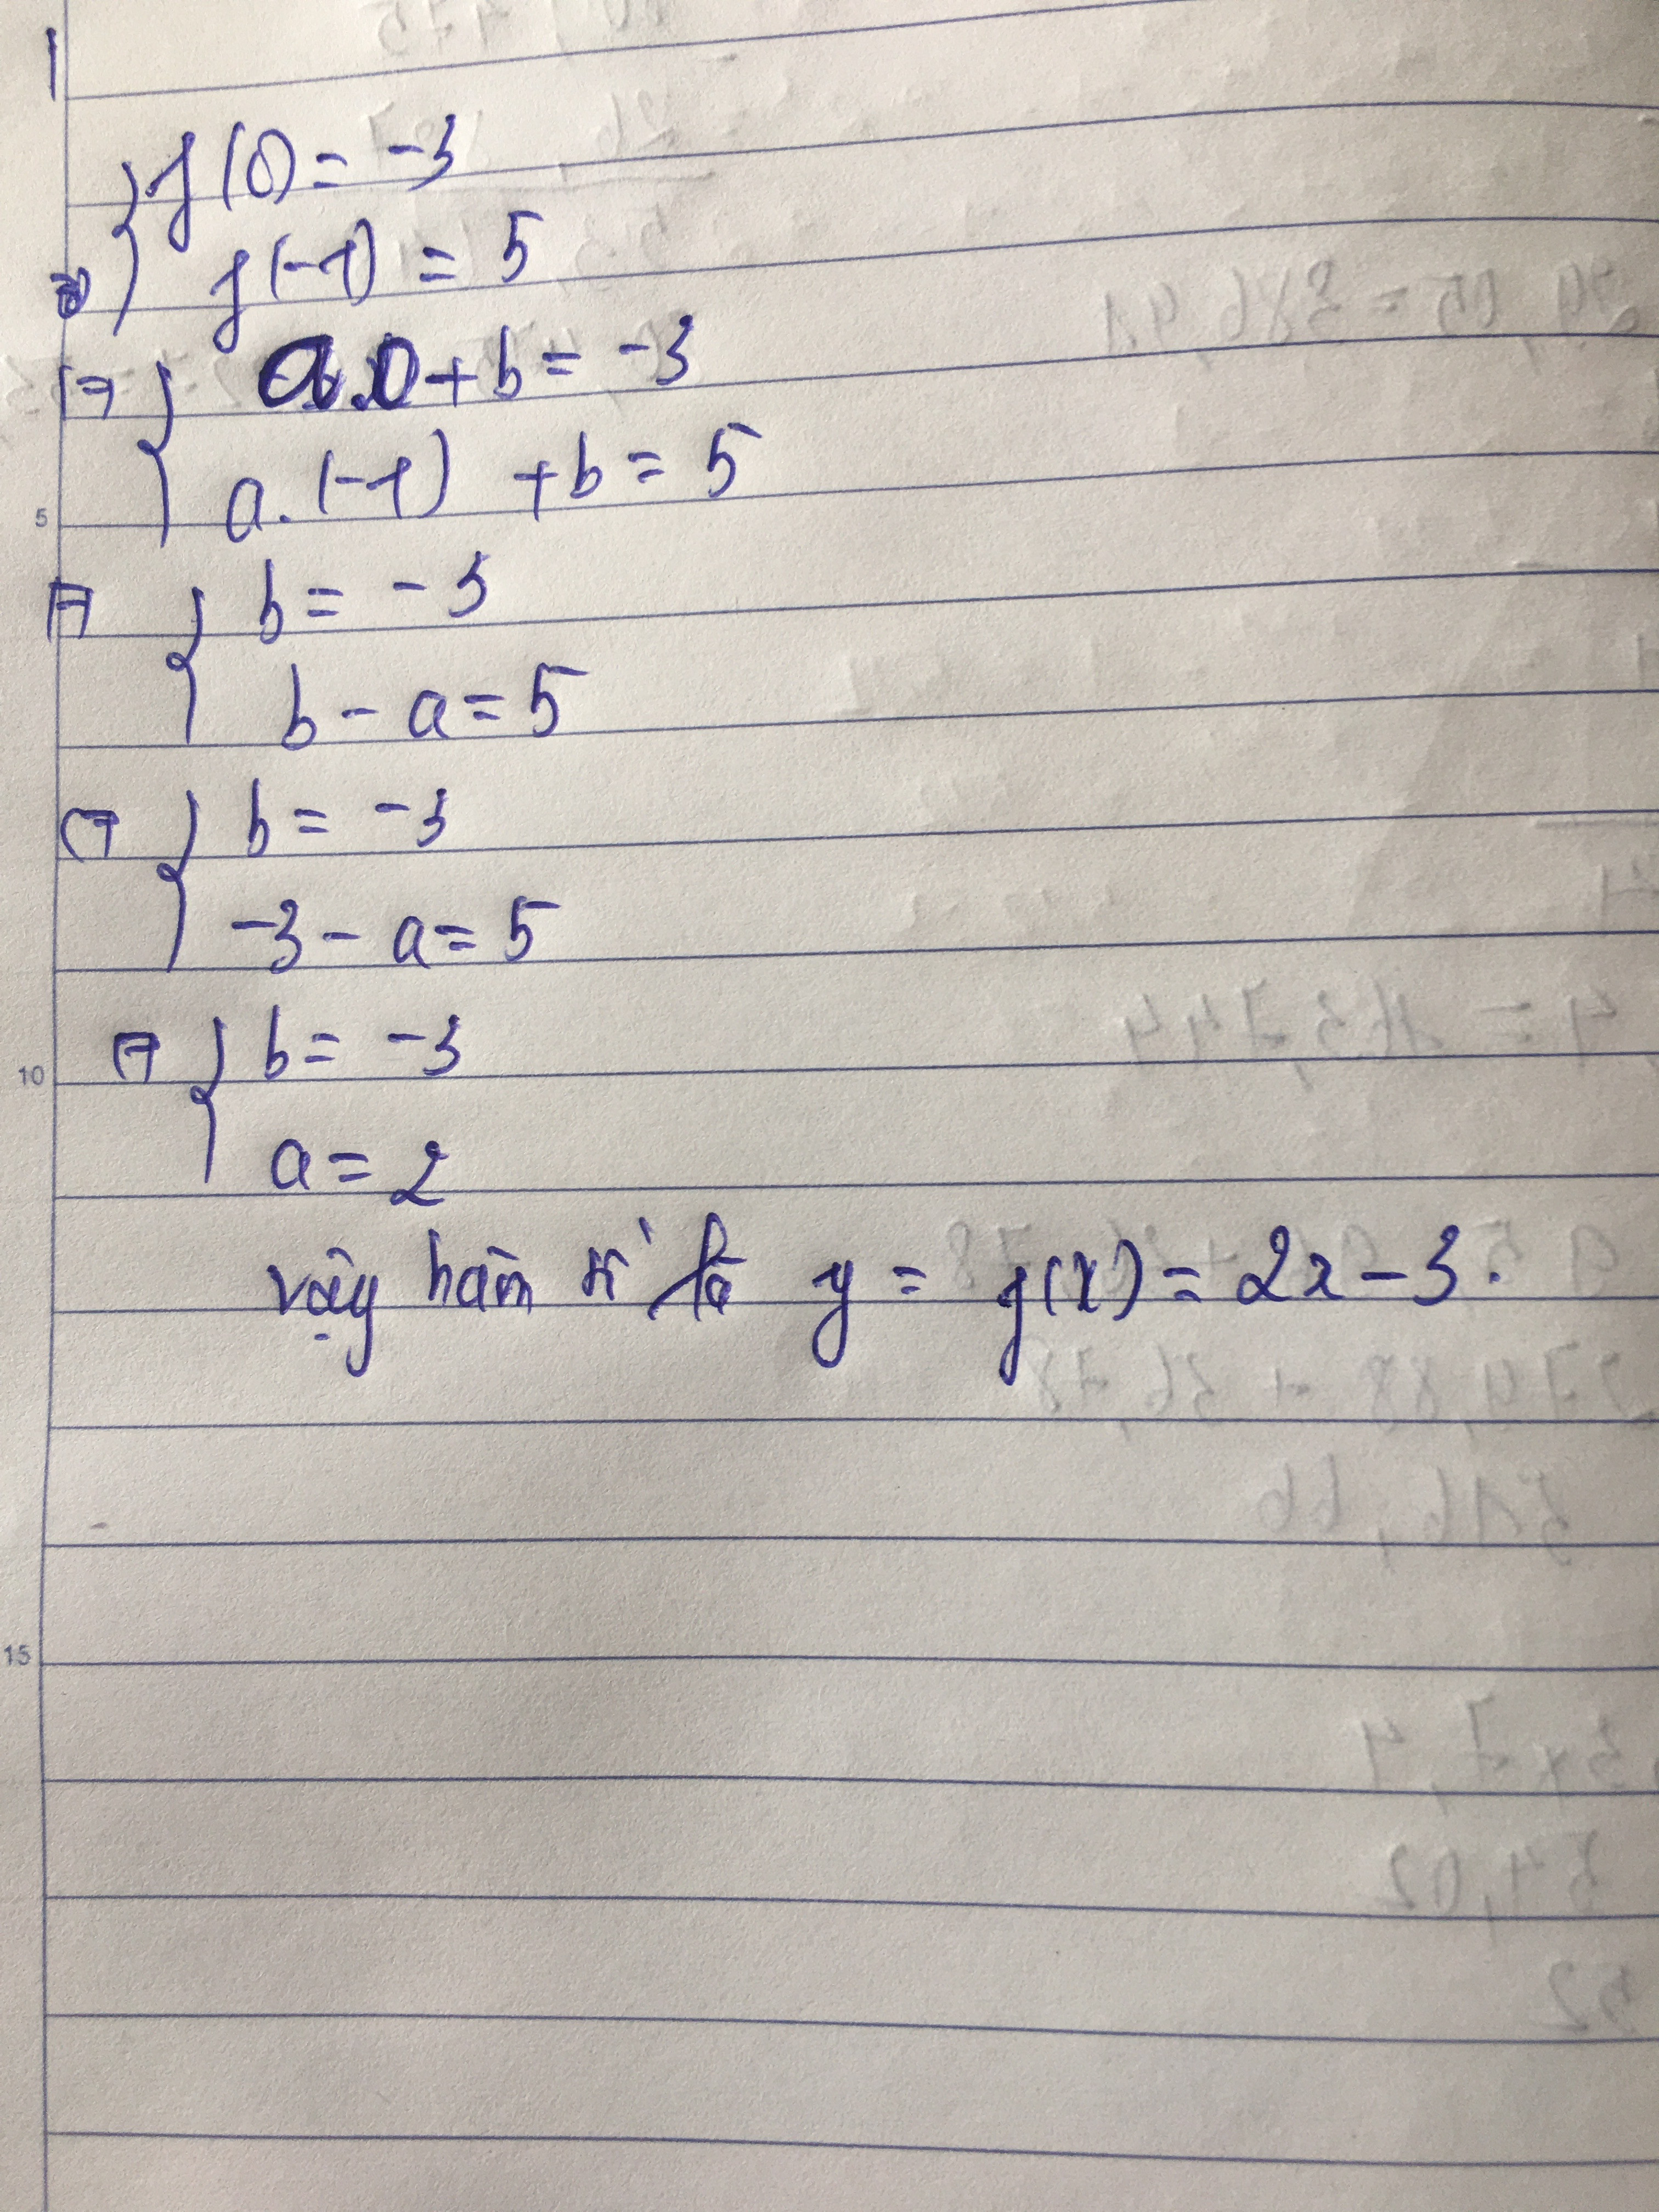 f(0) = -3
f(-1) = 5
⇔ a.0 + b = -3
a.(-1) + b = 5
⇔ b = -3
b - a = 5
⇔ b = -3
-3 - a = 5
⇔ b = -3
a = 2
vậy hàm số là y = f(x) = 2x - 3.
5
10
15